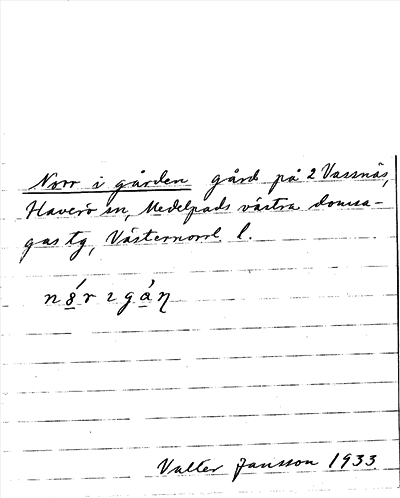 Norr i gården gård på 2 Vassnäs,
Haverö sn, Medelpads västra domsa-
gas tg, Västernorrl. l.
Valter Jansson 1933